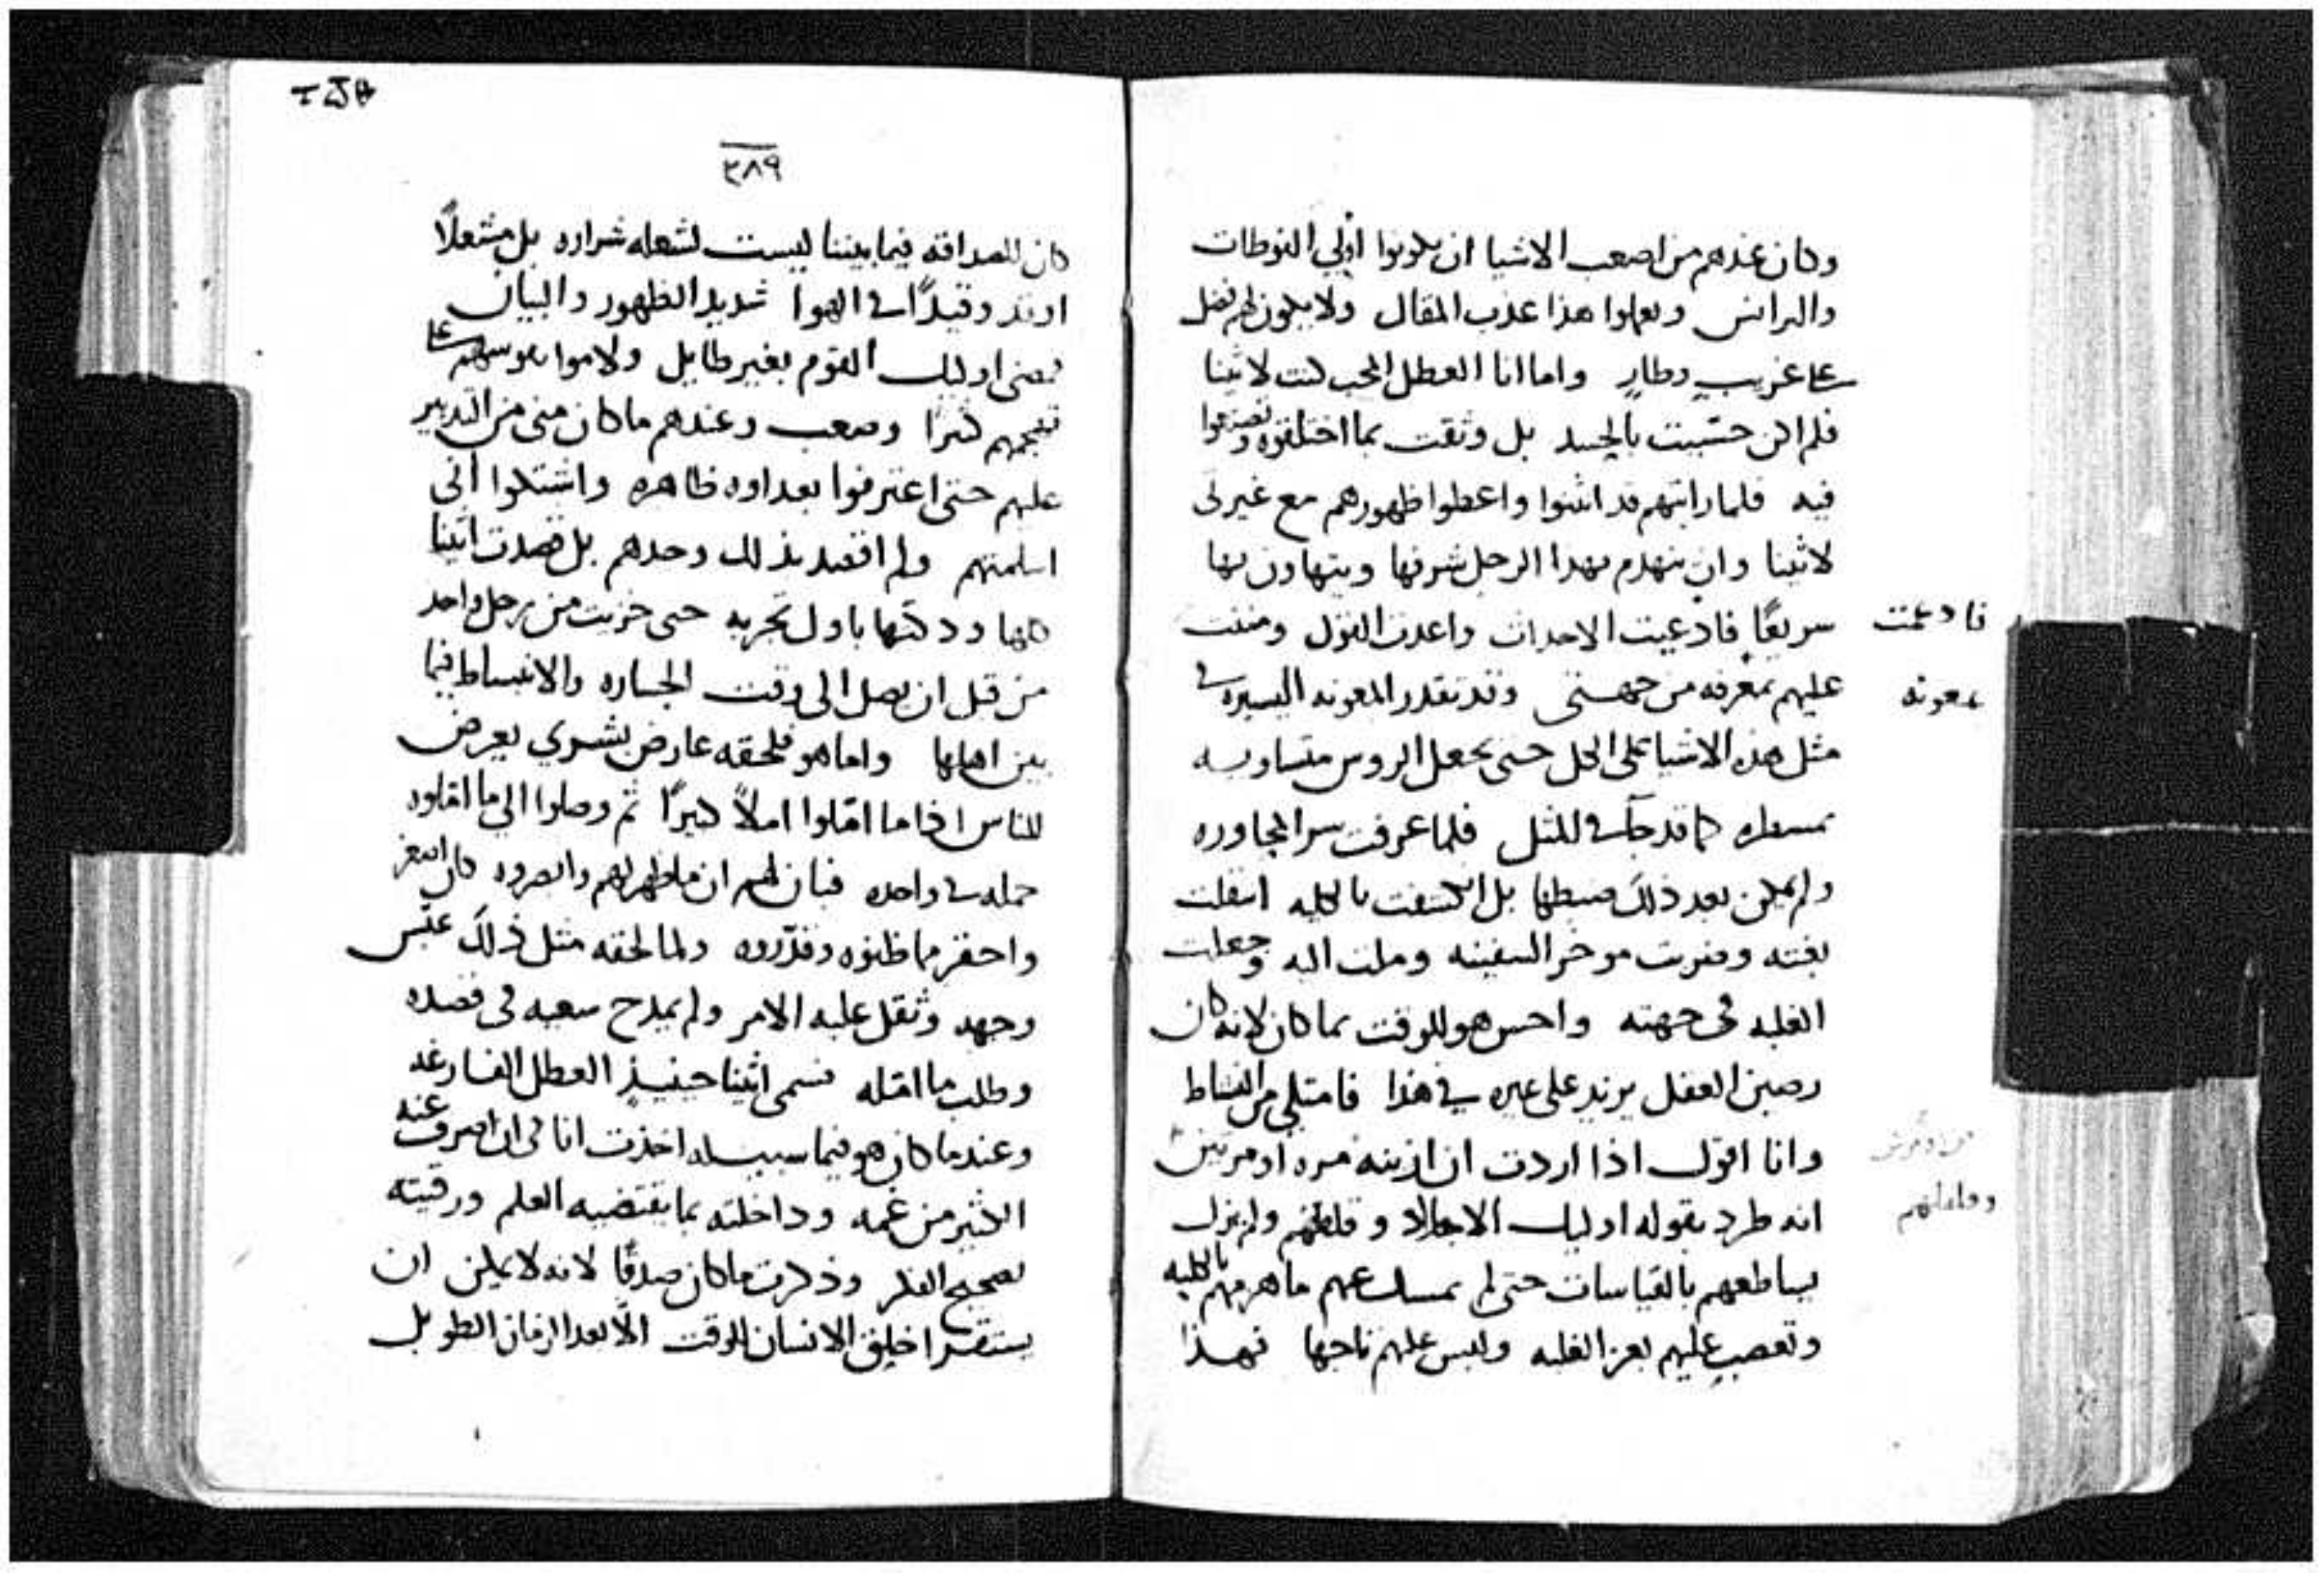 وكان عندهم من اصعب الاشيا ان يكونوا اولي النوطات
والبرانس ويعملوا هذا عذب المقال ولا يكون لهم فضل
على غريب وطارٍ واما انا العطل المحب كنت لاثينا
فلم اكن حسّيت بالحسد بل وثقت بما اختلقوه وتصنعوا
فيه فلما رايتهم قد انثنوا واعطوا ظهورهم مع غيرتي
لاثينا وان ينهدم بهذا الرجل شرفها ويتهاون بها
سريعًا فادعيت الاحداث واعدت القول ومننت
فادعمت
عليهم بمعرفه من جهتي وقد تقدر المعونه اليسيره في
بمعونه
مثل هذه الاشيا على الكل حتى يجعل الروس متساويه
كما قد جآ في المثل فلما عرفت سر المجاوره
ولم يمكن بعد ذلك ضبطها بل انكشفت بالكليه انتقلت
بغته وضربت موخر السفينه وملت اليه وجعلت
الغلبه في جهته واحس هو للوقت بما كان لانه كان
رصين العقل يزيد على غيره في هذا فامتلى من النشاط
وانا اقول اذا اردت ان ازينه مره او مرتين
انه طرد بقوله اوليك الاجلاد و ولم يزل
يساطعهم بالقياسات حتى لم يمسك عنهم ما هزمهم بالكليه
وتعصب عليهم بعز الغلبه ولبس عليهم تاجها فهذا
٣٨٩
كان للصداقه فيما بيننا ليست لشعله شراره بل مشعلاً
اوقد وقيدًا في الهوا شديد الظهور والبيان
فمضى اوليك القوم بغير طايل ولاموا نفوسهم على
تعجبهم كثيرًا وصعب وعندهم ما كان مني من التدبير
عليهم حتى اعترفوا بعداوه ظاهره واشتكوا اني
اسلمتهم ولم اقصد بذلك وحدهم بل قصدت اثينا
كلها باول تجربه حتى خزيت من رجل واحد
من قبل ان يصل الى وقت الجساره والانبساط فيما
بين اهلها واما هو فلحقه عارض بشري يعرض
للناس اذا ما امّلوا املاً كبيرًا ثم وصلوا الى ما املوه
جمله في واحده فبان لهم ان ما ظهر لهم وابصروه كان اصغر
واحقر مما ظنوه وقدّروه ولما لحقه مثل ذلك عبس
وجهه وثقل عليه الامر ولم يمدح سعيه في قصده
وطلب ما امّله فسمى اثينا حينيذٍ العطل الفارغه
وعندما كان هو فيما سبيله اخذت انا في ان اصرف عنه
الكثير من غمه وداخلته بما يقتضيه العلم ورقيته
بصحيح الفكر وذكرت ما كان صدقًا لانه لا يمكن ان
يستقر اخلق الانسان للوقت الّا بعد الزمان الطويل